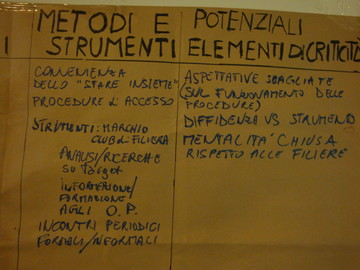 I
METODI E
STRUMENTI
CONVENIENZA
DELLO "STARE INSIEME"
PROCEDURE di ACCESSO
STRUMENTI: MARCHIO
CLUB di FILIERA
ANALISI/RICERCHE
SU TARGET
INFORMAZIONE/
FORMAZIONE
AGLI O.P.
INCONTRI PERIODICI
FORMALI/INFORMALI
POTENZIALI
ELEMENTI DI CRITICITÀ
ASPETTATIVE SBAGLIATE
(SUL FUNZIONAMENTO DELLE
PROCEDURE)
DIFFIDENZA VS STRUMENTO
MENTALITÀ CHIUSA
RISPETTO ALLE FILIERE